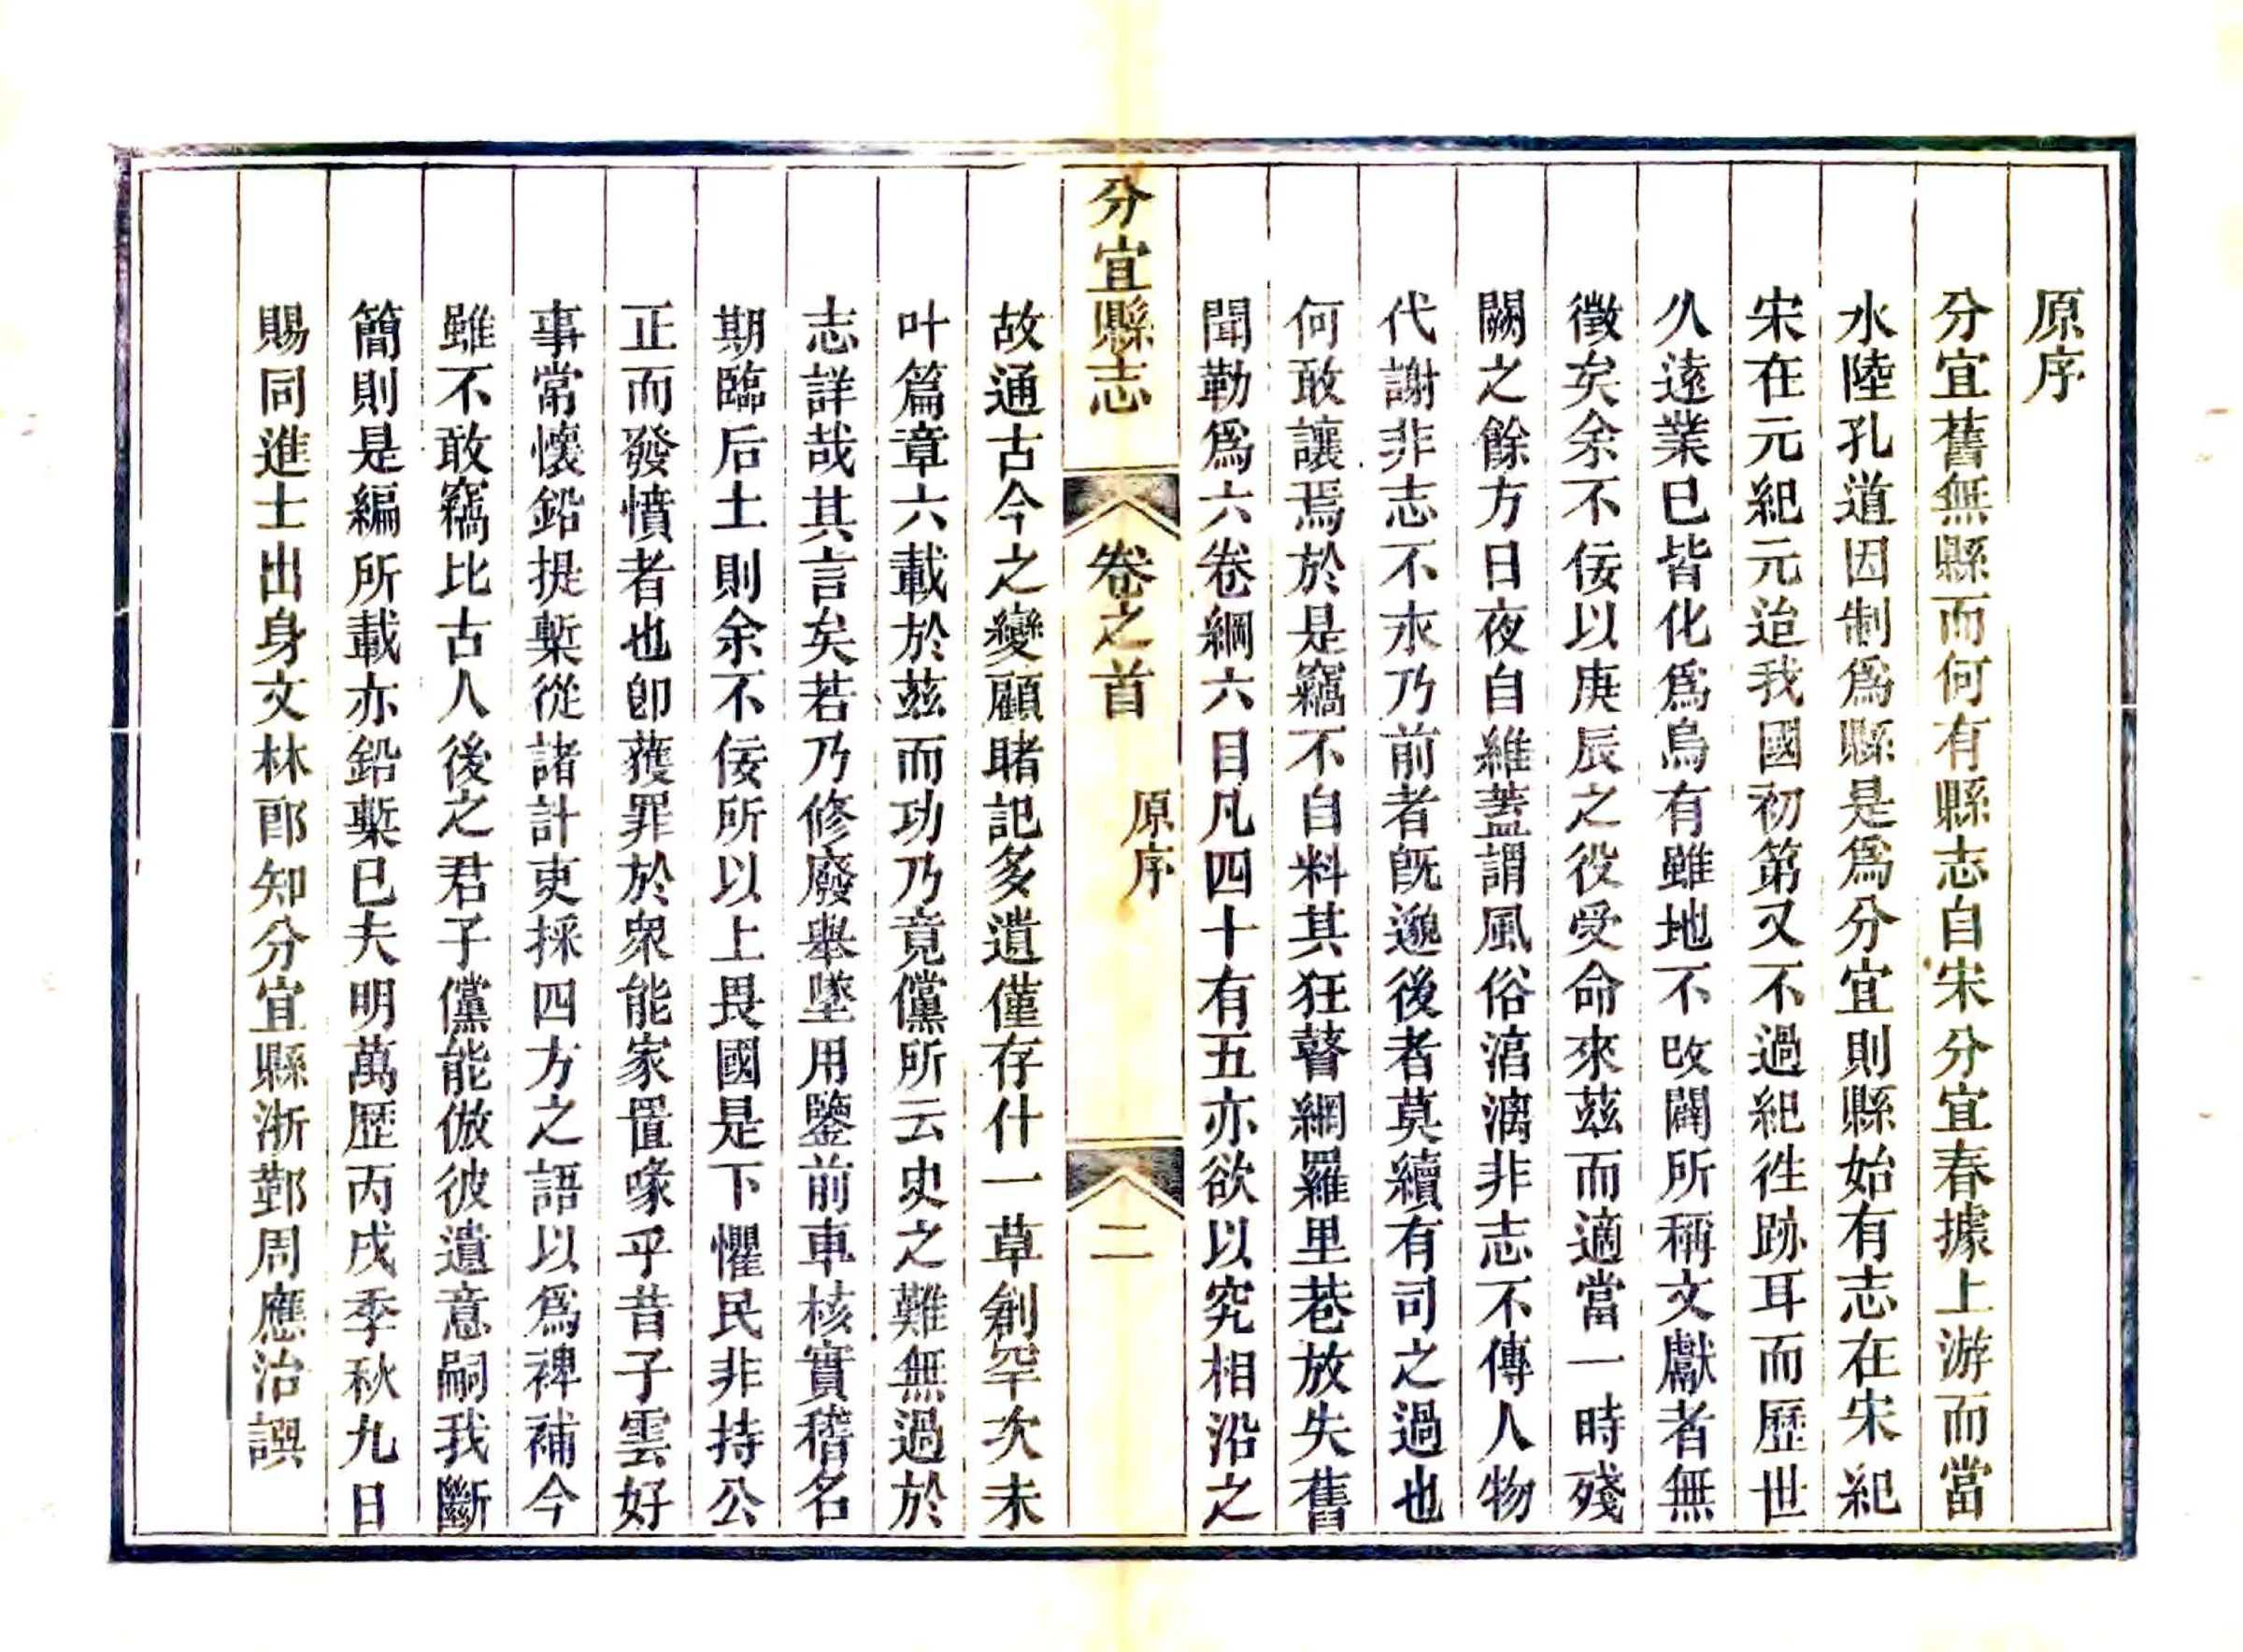 原序
分宜舊無縣而何有縣志自宋分宜春據上游而當
水陸孔道因制爲縣是爲分宜則縣始有志在宋紀
宋在元紀元迨我國初第又不過紀徃跡耳而歷世
久遠業已皆化爲烏有雖地不改闢所稱文獻者無
徵矣余不佞以庚辰之役受命來茲而適當一時殘
闕之餘方日夜自維蓋謂風俗湻漓非志不傳人物
代謝非志不永乃前者旣邈後者莫續有司之過也
何敢讓焉於是竊不自料其狂瞽網羅里巷放失舊
聞勒爲六卷綱六目凡四十有五亦欲以究相沿之
分宜縣志
卷之首
原序
二
故通古今之變顧睹記多遺僅存什一草創罕次未
叶篇章六載於茲而功乃竟儻所云史之難無過於
志詳哉其言矣若乃修廢舉墜用鑒前車核實稽名
期臨后土則余不佞所以上畏國是下懼民非持公
正而發憤者也卽獲罪於衆能家置喙乎昔子雲好
事常懷鉛提槧從諸計吏採四方之語以爲裨補今
雖不敢竊比古人後之君子儻能倣彼遺意嗣我斷
簡則是編所載亦鉛槧已夫明萬歷丙戌季秋九日
賜同進士出身文林郎知分宜縣浙鄞周應治譔